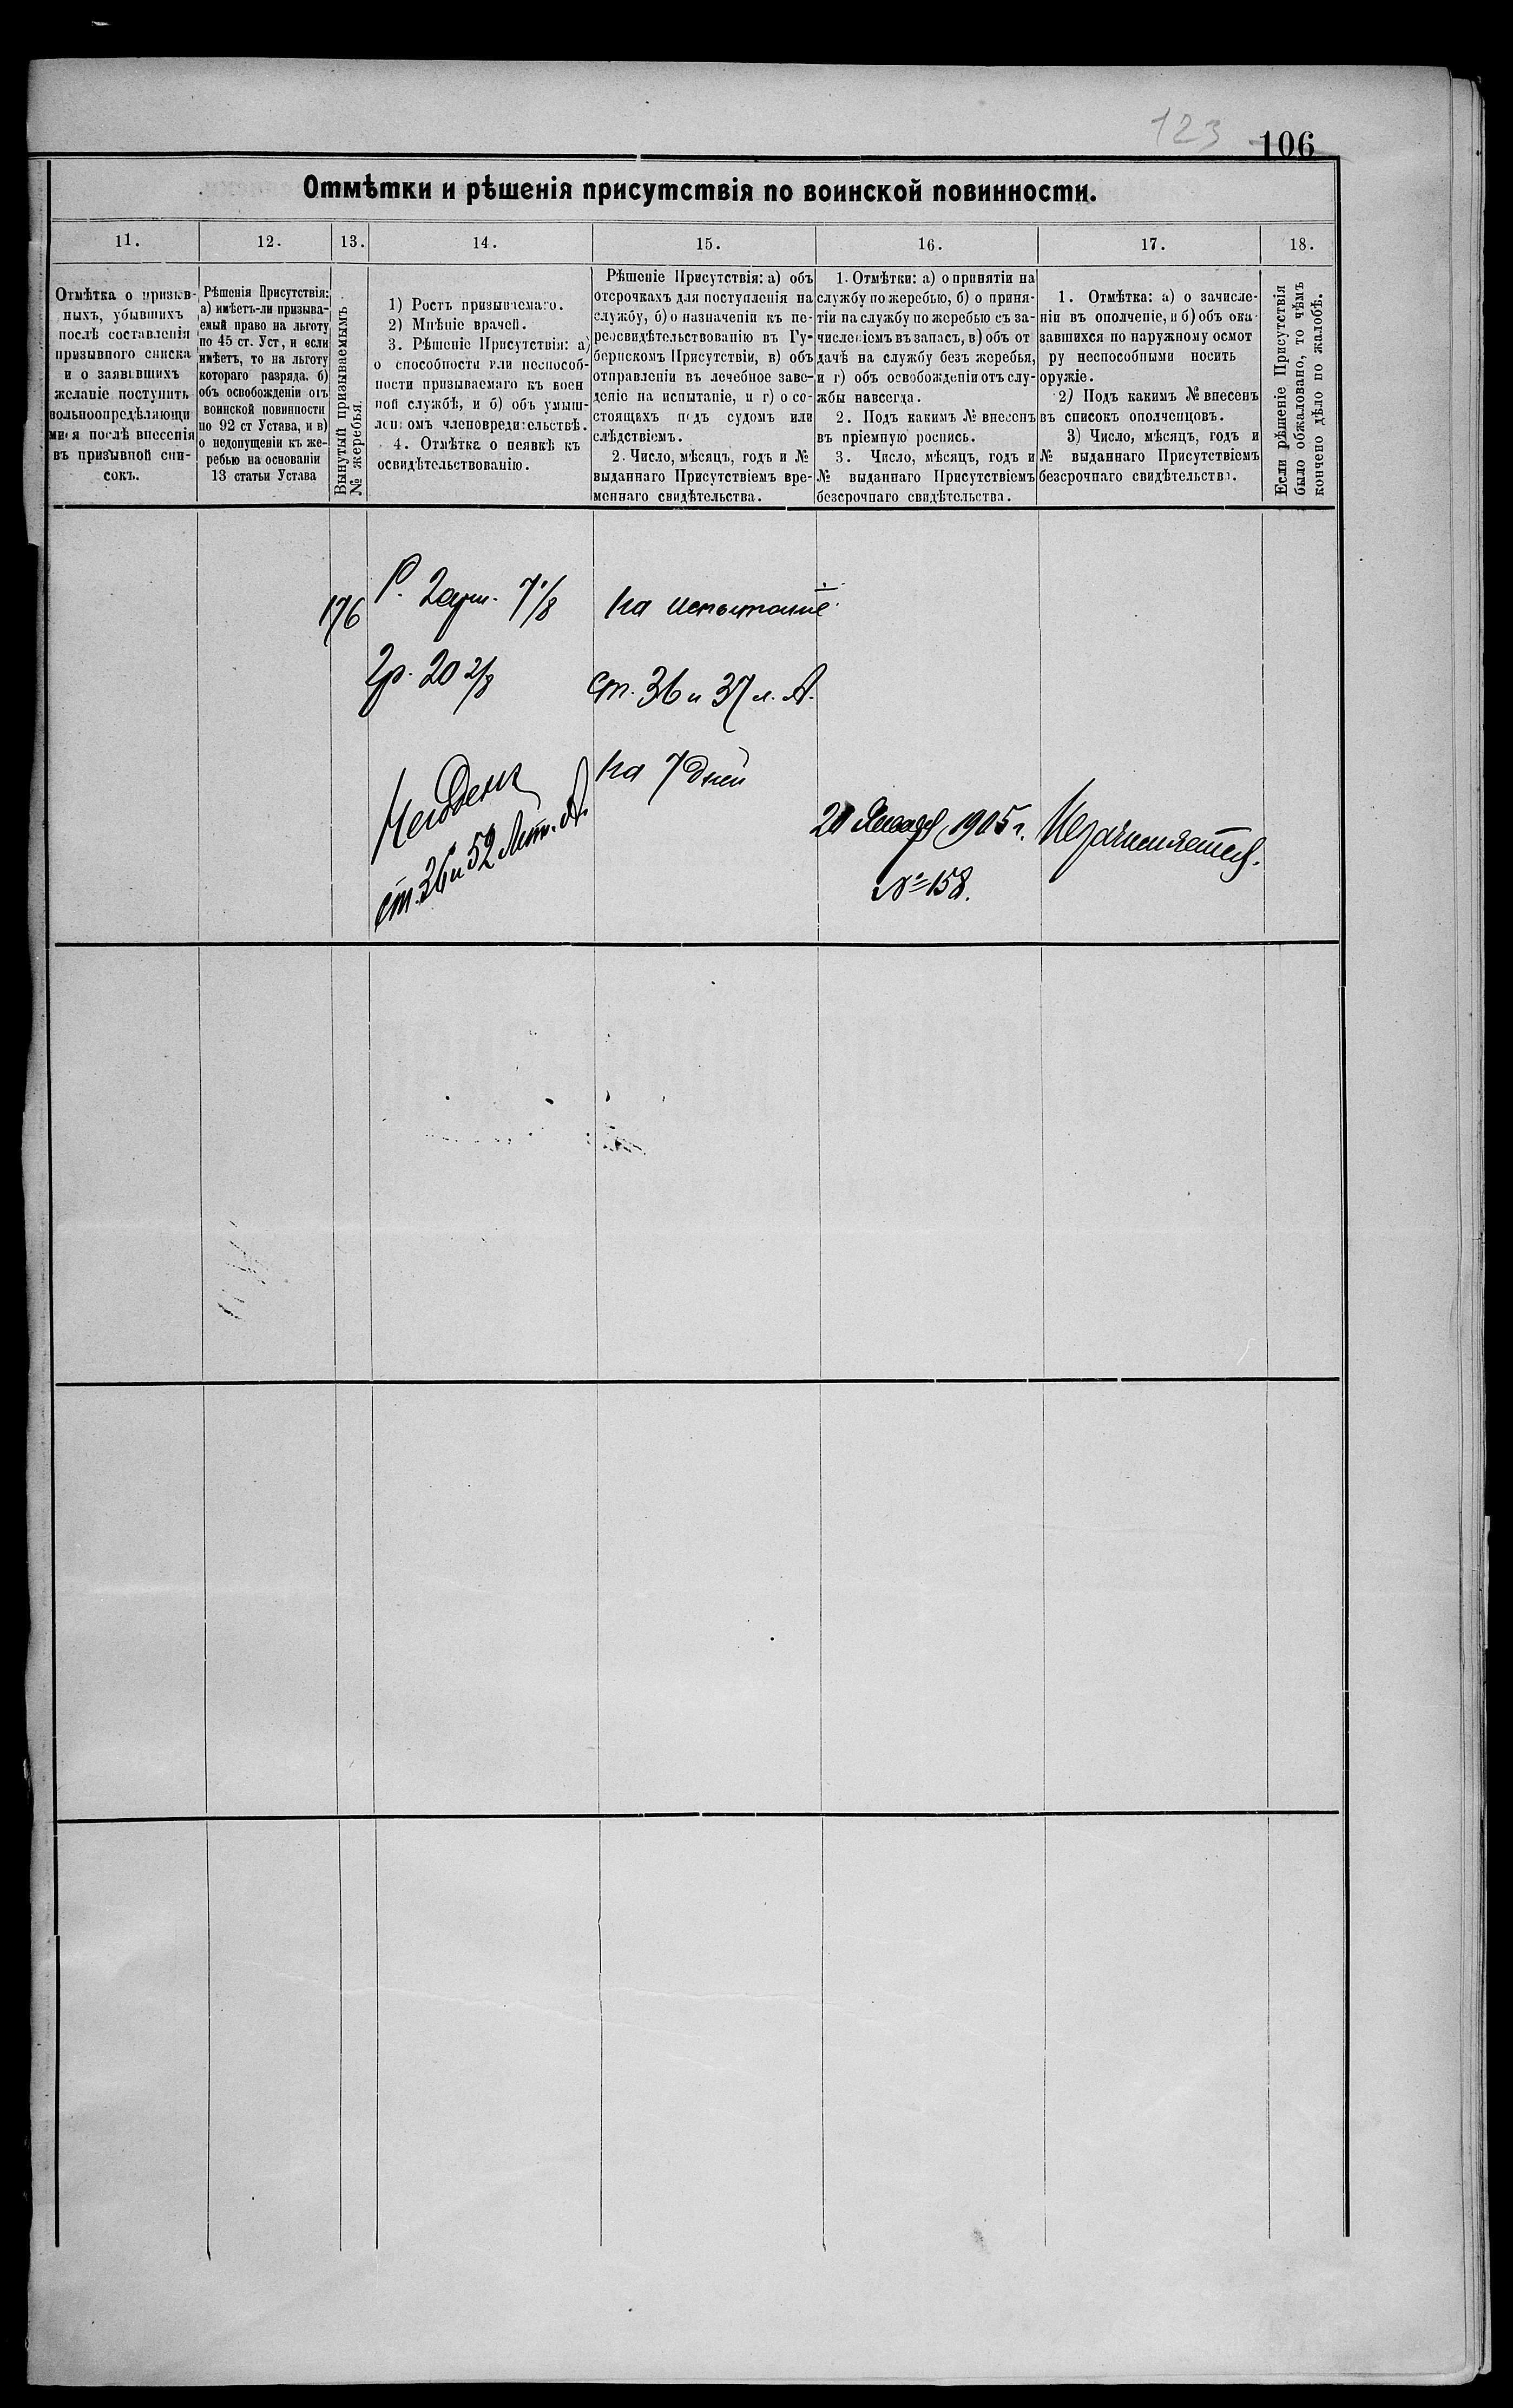 123
106
Отмѣтки и рѣшенія присутствія по воинской повинности.
11.
12.
13.
14.
15.
16.
17.
18.
Отмѣтка о призыв-
ныхъ, убывшихъ
послѣ составленія
призывного списка
и о заявившихъ
желаніе поступить
вольноопредѣляющи
мися послѣ внесенія
въ призывной спи-
сокъ.
Рѣшенія Присутствія:
а) имѣетъ-ли призыва-
емый право на льготу
по 45 ст. Уст, и если
имѣетъ, то на льготу
котораго разряда. б)
объ освобожденіи отъ
воинской повинности
по 92 ст Устава, и в)
о недопущеніи къ же-
ребью на основаніи
13 статьи Устава
Вынутый призываемымъ
№ жеребья.
1) Ростъ призываемаго.
2) Мнѣніе врачей.
3. Рѣшеніе Присутствія: а)
о способности или неспособ-
ности призываемаго къ воен
ной службѣ, и б) объ умыш-
ленномъ членовредительствѣ.
4. Отмѣтка о неявкѣ къ
освидѣтельствованію.
Рѣшеніе Присутствія: а) объ
отсрочкахъ для поступленія на
службу, б) о назначеніи къ пе-
реосвидѣтельствованію въ Гу-
бернскомъ Присутствіи, в) объ
отправленіи въ лечебное заве-
деніе на испытаніе, и г) о со-
стоящихъ подъ судомъ или
слѣдствіемъ.
2. Число, мѣсяцъ, годъ и №
выданнаго Присутствіемъ вре-
меннаго свидѣтельства.
1. Отмѣтки: а) о принятіи на
службу по жеребью, б) о приня-
тіи на службу по жеребью съ за-
численіемъ въ запасъ, в) объ от
дачѣ на службу безъ жеребья,
и г) объ освобожденіи отъ слу-
жбы навсегда.
2. Подъ какимъ № внесенъ
въ пріемную роспись.
3. Число, мѣсяцъ, годъ и
№ выданнаго Присутствіемъ
безсрочнаго свидѣтельства.
1. Отмѣтка: а) о зачисле-
ніи въ ополченіе, и б) объ ока-
завшихся по наружному осмот
ру неспособными носить
оружіе.
2) Подъ какимъ № внесенъ
въ списокъ ополченцовъ.
3) Число, мѣсяцъ, годъ и
№ выданнаго Присутствіемъ
безсрочнаго свидѣтельства.
Если рѣшеніе Присутствія
было обжаловано, то чѣмъ
кончено дѣло по жалобѣ.
176
Р. 2 арш. 7 1/8
Гр. 20 2/8
Негоденъ
ст. 36 и 52 Лит. А.
На испытаніе
ст. 36 и 37 л. А.
На 7 дней
20 Января 1905 г.
№ 158.
Незачисляется.